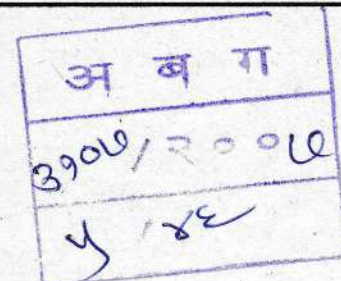 अ ब ग
३१०७/२००७
५ ४६